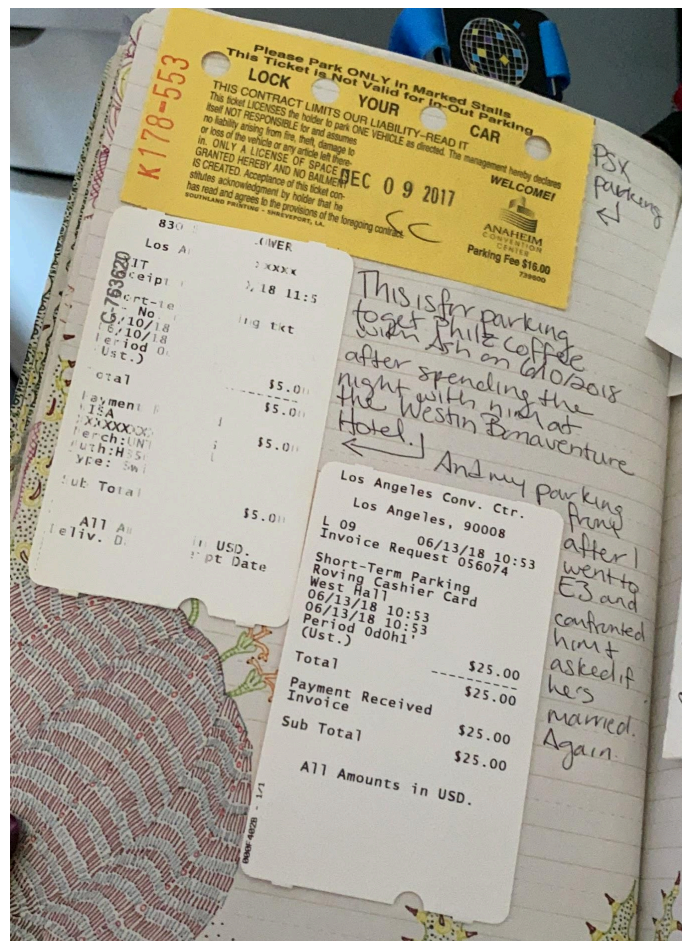 K178-553
Please Park ONLY in Marked Stalls
This Ticket is Not Valid for In-Out Parking
LOCK YOUR CAR
THIS CONTRACT LIMITS OUR LIABILITY-READ IT
This ticket LICENSES the holder to park ONE VEHICLE as directed. The management hereby declares
itself NOT RESPONSIBLE for and assumes
no liability arising from fire, theft, damage to
or loss of the vehicle or any article left there-
in. ONLY A LICENSE OF SPACE IS
GRANTED HEREBY AND NO BAILMENT
IS CREATED. Acceptance of this ticket con-
stitutes acknowledgment by holder that he
has read and agrees to the provisions of the foregoing contract.
SOUTHLAND PRINTING - SHREVEPORT, LA.
WELCOME!
DEC 09 2017
CC
ANAHEIM
CONVENTION
CENTER
Parking Fee $16.00
739600
PSX
parking
830
Los A
XXXX
18 11:5
No.
6/10/18
6/10/18
Ust.)
G-763620
$5.0
$5.0
VISA
$5.0
Sub Total
$5.0
All
in USD.
Deliv. D
pt Date
This is for parking
to get Philz Coffee
with Ash on 6/10/2018
after spending the
night with him at
the Westin Bonaventure
Hotel.
And my parking
from
after I
went to
E3 and
confronted
him &
asked if
he's
married.
Again.
Los Angeles Conv. Ctr.
Los Angeles, 90008
L 09 06/13/18 10:53
Invoice Request 056074
Short-Term Parking
Roving Cashier Card
West Hall
06/13/18 10:53
06/13/18 10:53
Period 0d0h1'
(Ust.)
Total $25.00
$25.00
Payment Received
Invoice $25.00
Sub Total $25.00
All Amounts in USD.